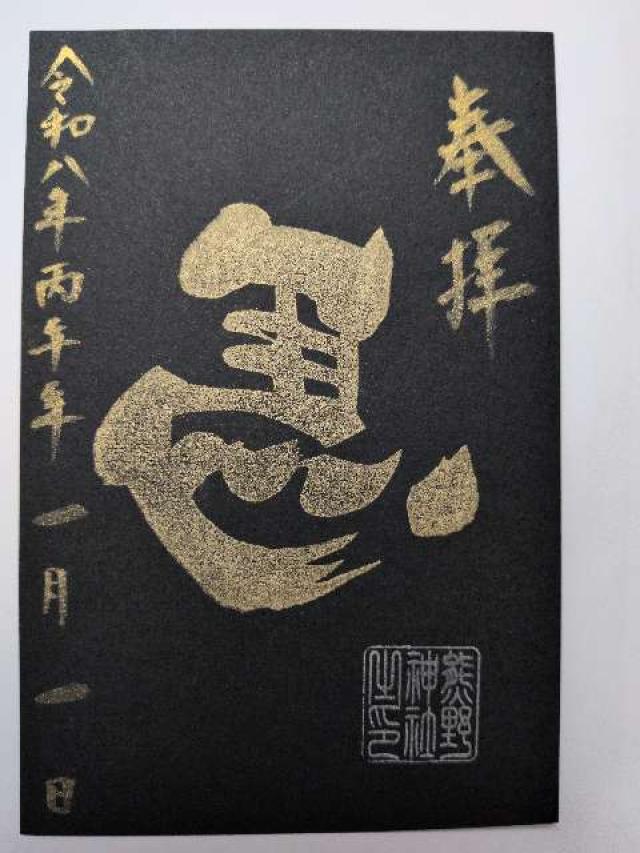 奉拝
令和八年丙午年一月一日
熊野
神社
之印